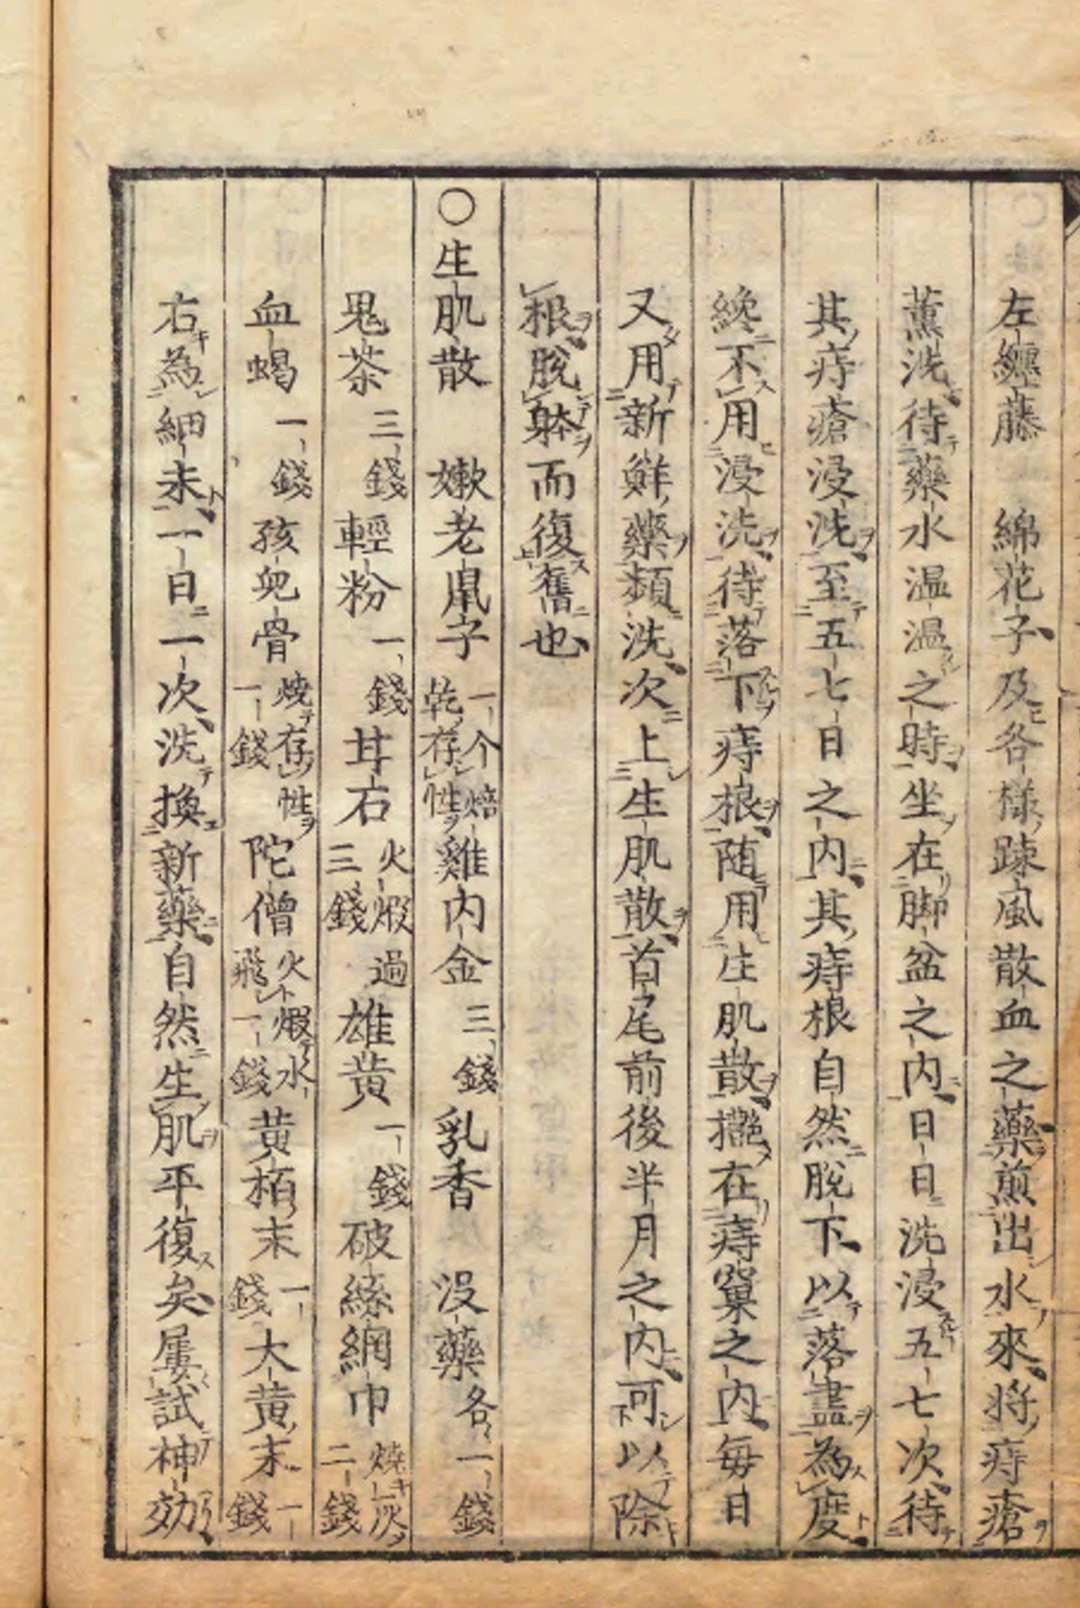 左纏藤　綿花子及各樣踈風散血之藥煎出水來將痔瘡
薫洗待藥水温温之時坐在脚盆之内日日洗浸五七次待
其痔瘡浸洗至五七日之内其痔根自然脫下以落盡為度
纔不用浸洗待落下痔根随用生肌散摻在痔窠之内毎日
又用新鮮藥類洗次上生肌散首尾前後半月之内可以除
根脫躰而復舊也
○生肌散　嫩老鼠子一个焙乾存性雞内金三錢乳香　没藥各一錢
児茶三錢輕粉一錢甘石火煆過三錢雄黄一錢破絲網巾燒灰二錢
血蝎一錢孩児骨燒存性一錢陀僧火煆水飛一錢黄栢末一錢大黄末一錢
右為細末一日一次洗換新藥自然生肌平復矣屢試神効